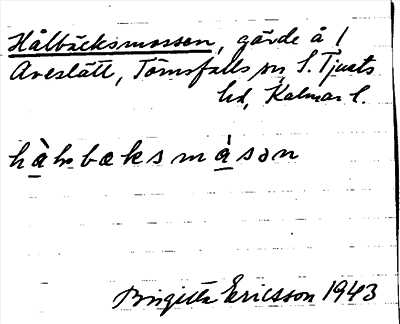 Hålbäcksmossen, gärde å 1
Aveslätt, Törnsfalls sn, S. Tjusts
hd, Kalmar l.
hàlsbæksmåsən
Birgitta Ericsson 1943